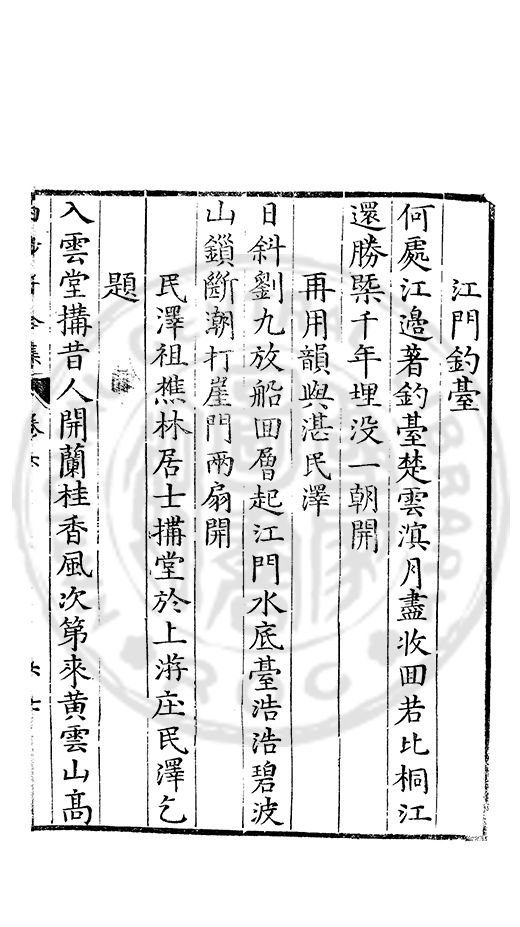 江門釣臺
何處江邊著釣臺楚雲滇月盡收回若比桐江
還勝槩千年埋没一朝開
再用韻與湛民澤
日斜劉九放船回層起江門水底臺浩浩碧波
山鎖斷潮打崖門兩扇開
民澤祖樵林居士搆堂於上游庄民澤乞
題
入雲堂搆昔人開蘭桂香風次第來黄雲山高